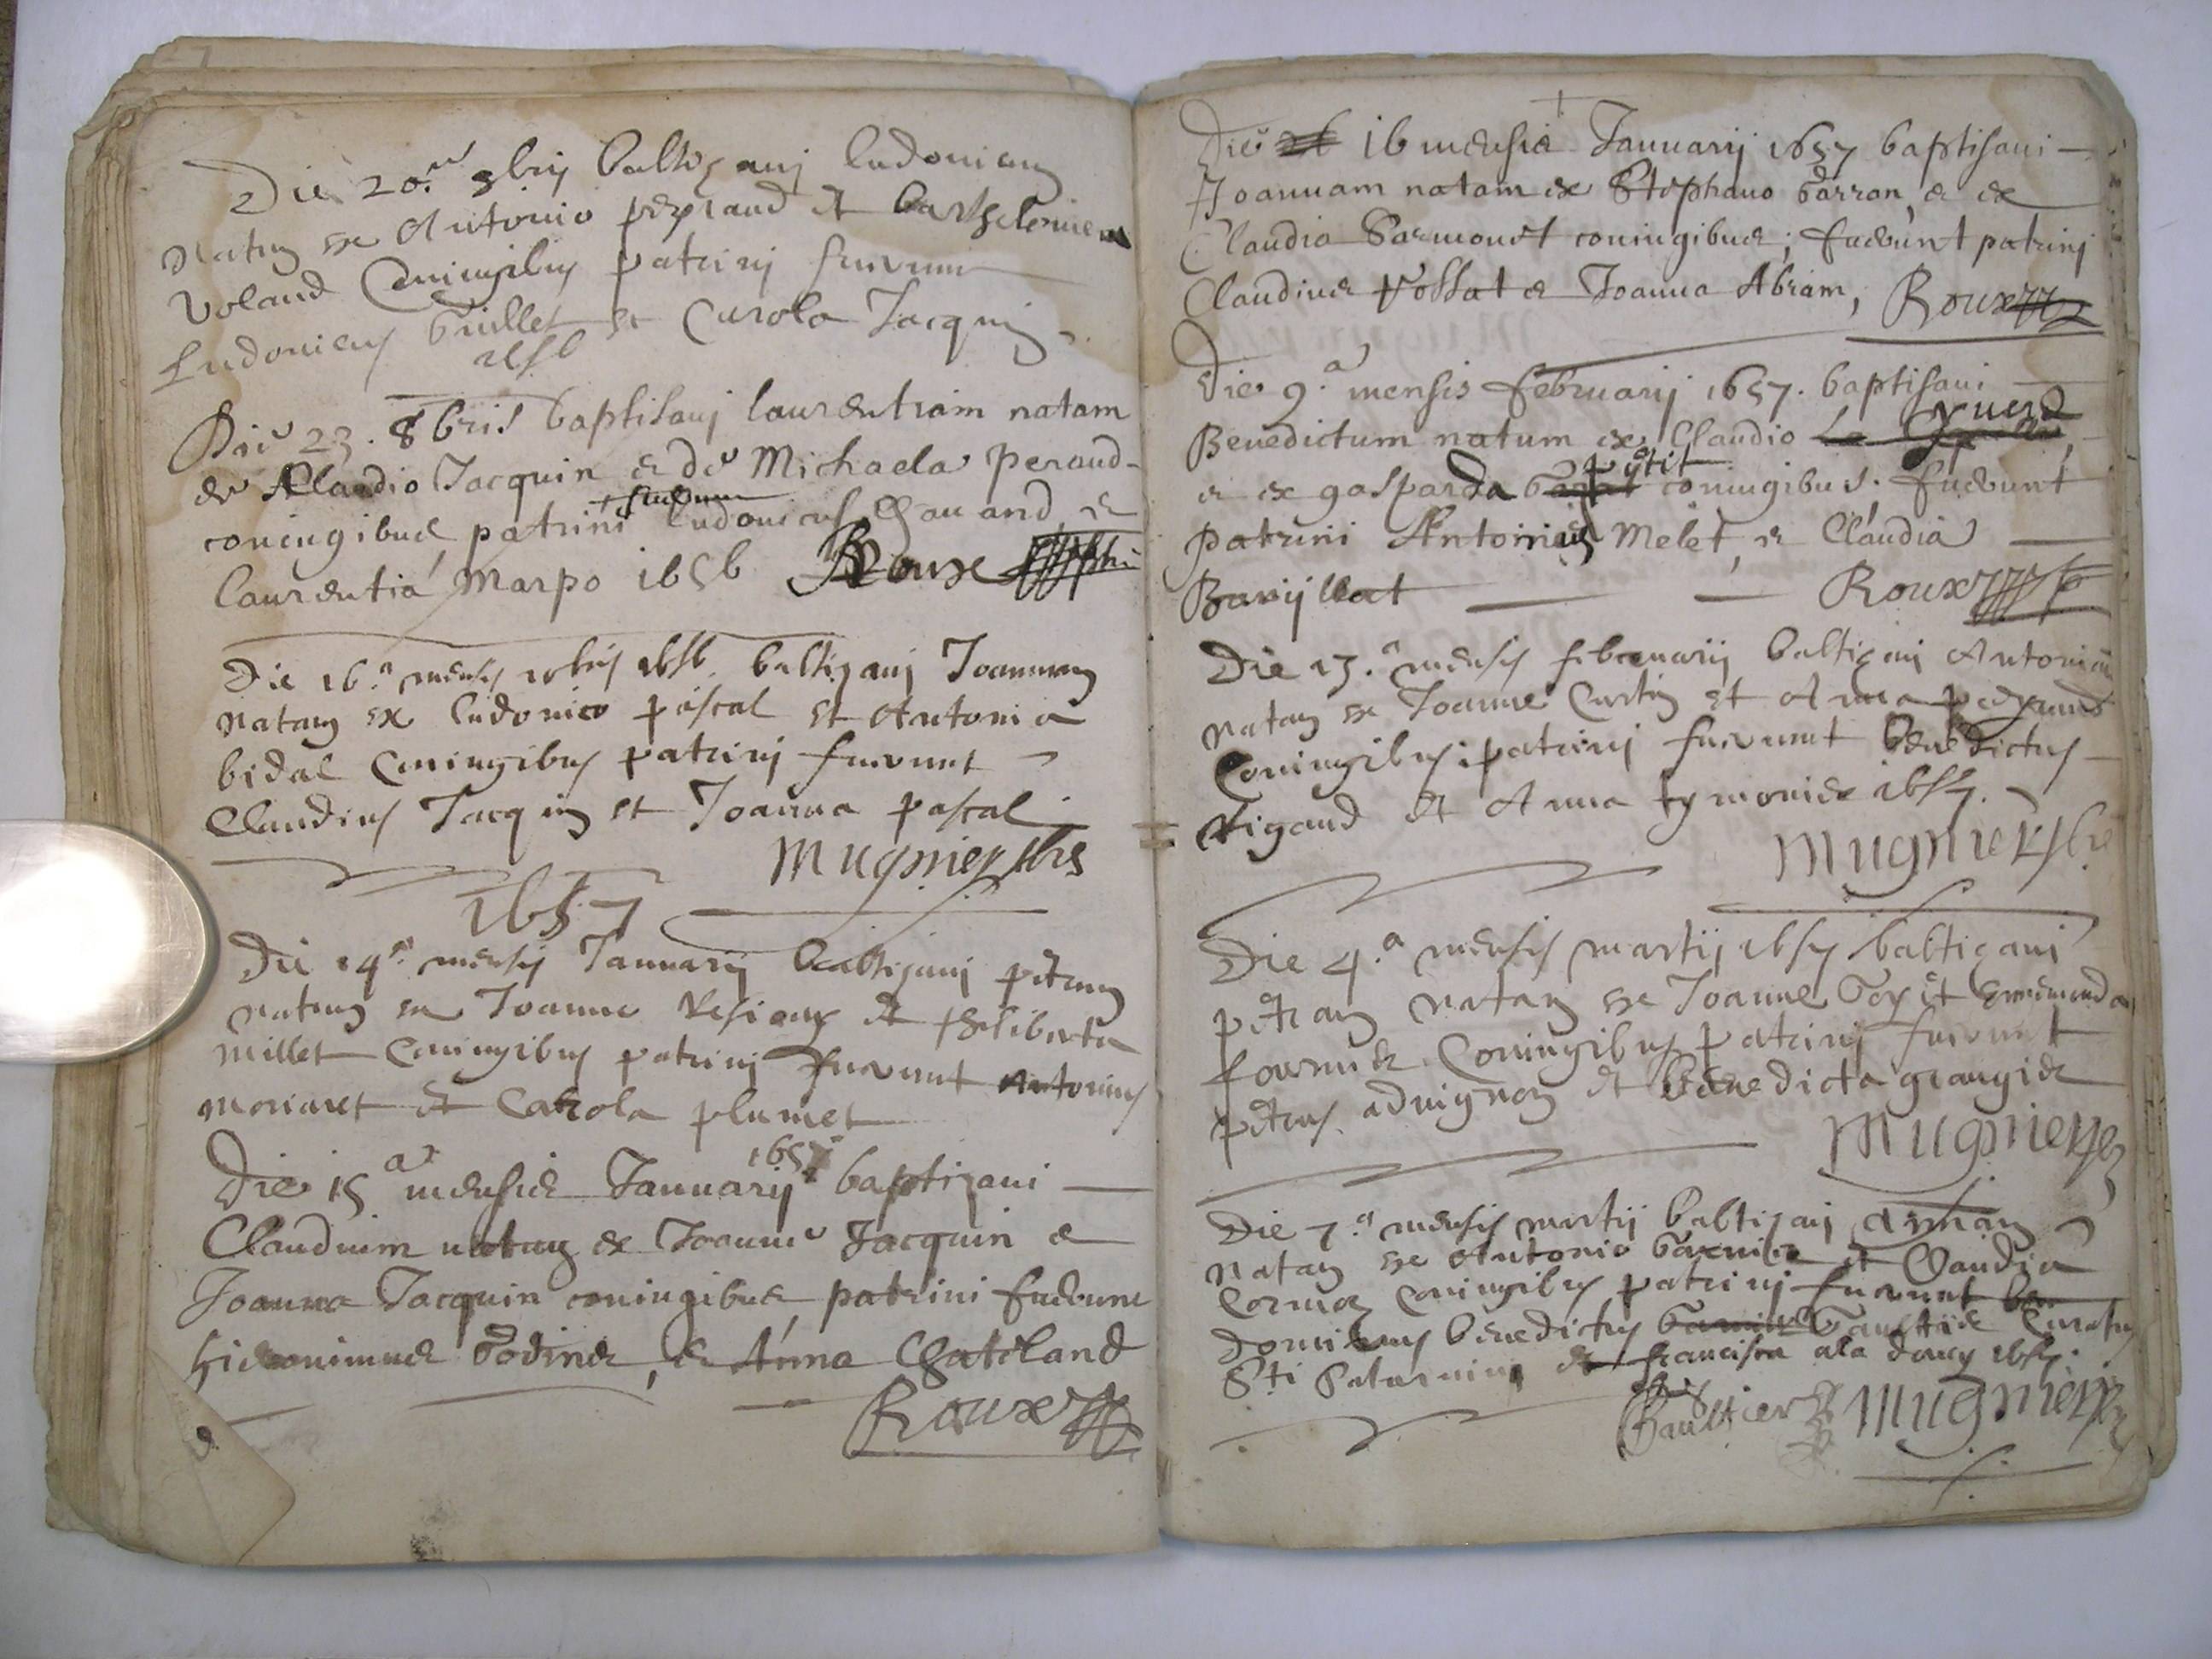 Die 20.a 9bris baltizavi ludovicum
natum ex Antonio peyraud et bartholomea
Voland Coniugibus patrini fuerunt
Ludovicus Guillet et Carola Jacquin
1656
Die 23. 8bris baptisavi laurentiam natam
de Claudio Jacquin & de Michaela Peraud
coniugibus patrini fuerunt ludovicus Chauand &
laurentia Marpo 1656 Roux
Die 16.a mensis xbris 1656. baltizavi Joannam
natam ex ludovico pascal et Antonia
bidal Coniugibus patrini fuerunt
Claudius Jacquin et Joanna pascal
Mugnier pbrs
1657
Die 14.a mensis Januarij baltizavi petrum
natum ex Joanne et philiberta
Millet Coniugibus patrini fuerunt Antonius
Moriaret et Carola plumet
Die 15a mensis Januarij 1657 baptizavi
Claudium natum ex Joanne Jacquin &
Joanna Jacquin coniugibus, patrini fuerunt
hieronimus Godiner, & Anna Chateland
Roux
Die 16 mensis Januarij 1657 baptisavi
Joannam natam ex Stephano Garran, & ex
Claudia Sarmonet coniugibus; fuerunt patrini
Claudius Vossat & Joanna Abram, Roux
Die 9.a mensis februarij 1657. baptisavi
Benedictum natum ex Claudio La
& ex gasparda petit coniugibus. fuerunt
patrini Antonius Melet, & Claudia
Barijllat Roux
Die 13.a mensis februarij baltizavi Antoniam
natam ex Joanne Curtin et Anna peyraud
Coniugibus patrini fuerunt benedictus
rigaud et Anna tymonier 1657.
Mugnier pbr
Die 4.a mensis martij 1657 baltizavi
petram natam ex Joanne Goy et Ennemunda
fournier Coniugibus patrini fuerunt
petrus advignon et benedicta grangier
Mugnier
Die 7.a mensis martij baltizavi annam
natam ex Antonio Garnier et Claudia
Cormoz Coniugibus patrini fuerunt
dominus benedictus Gaultier Curatus
Sti Saturnini et francisca ala douz 1657.
Gaultier Mugnier